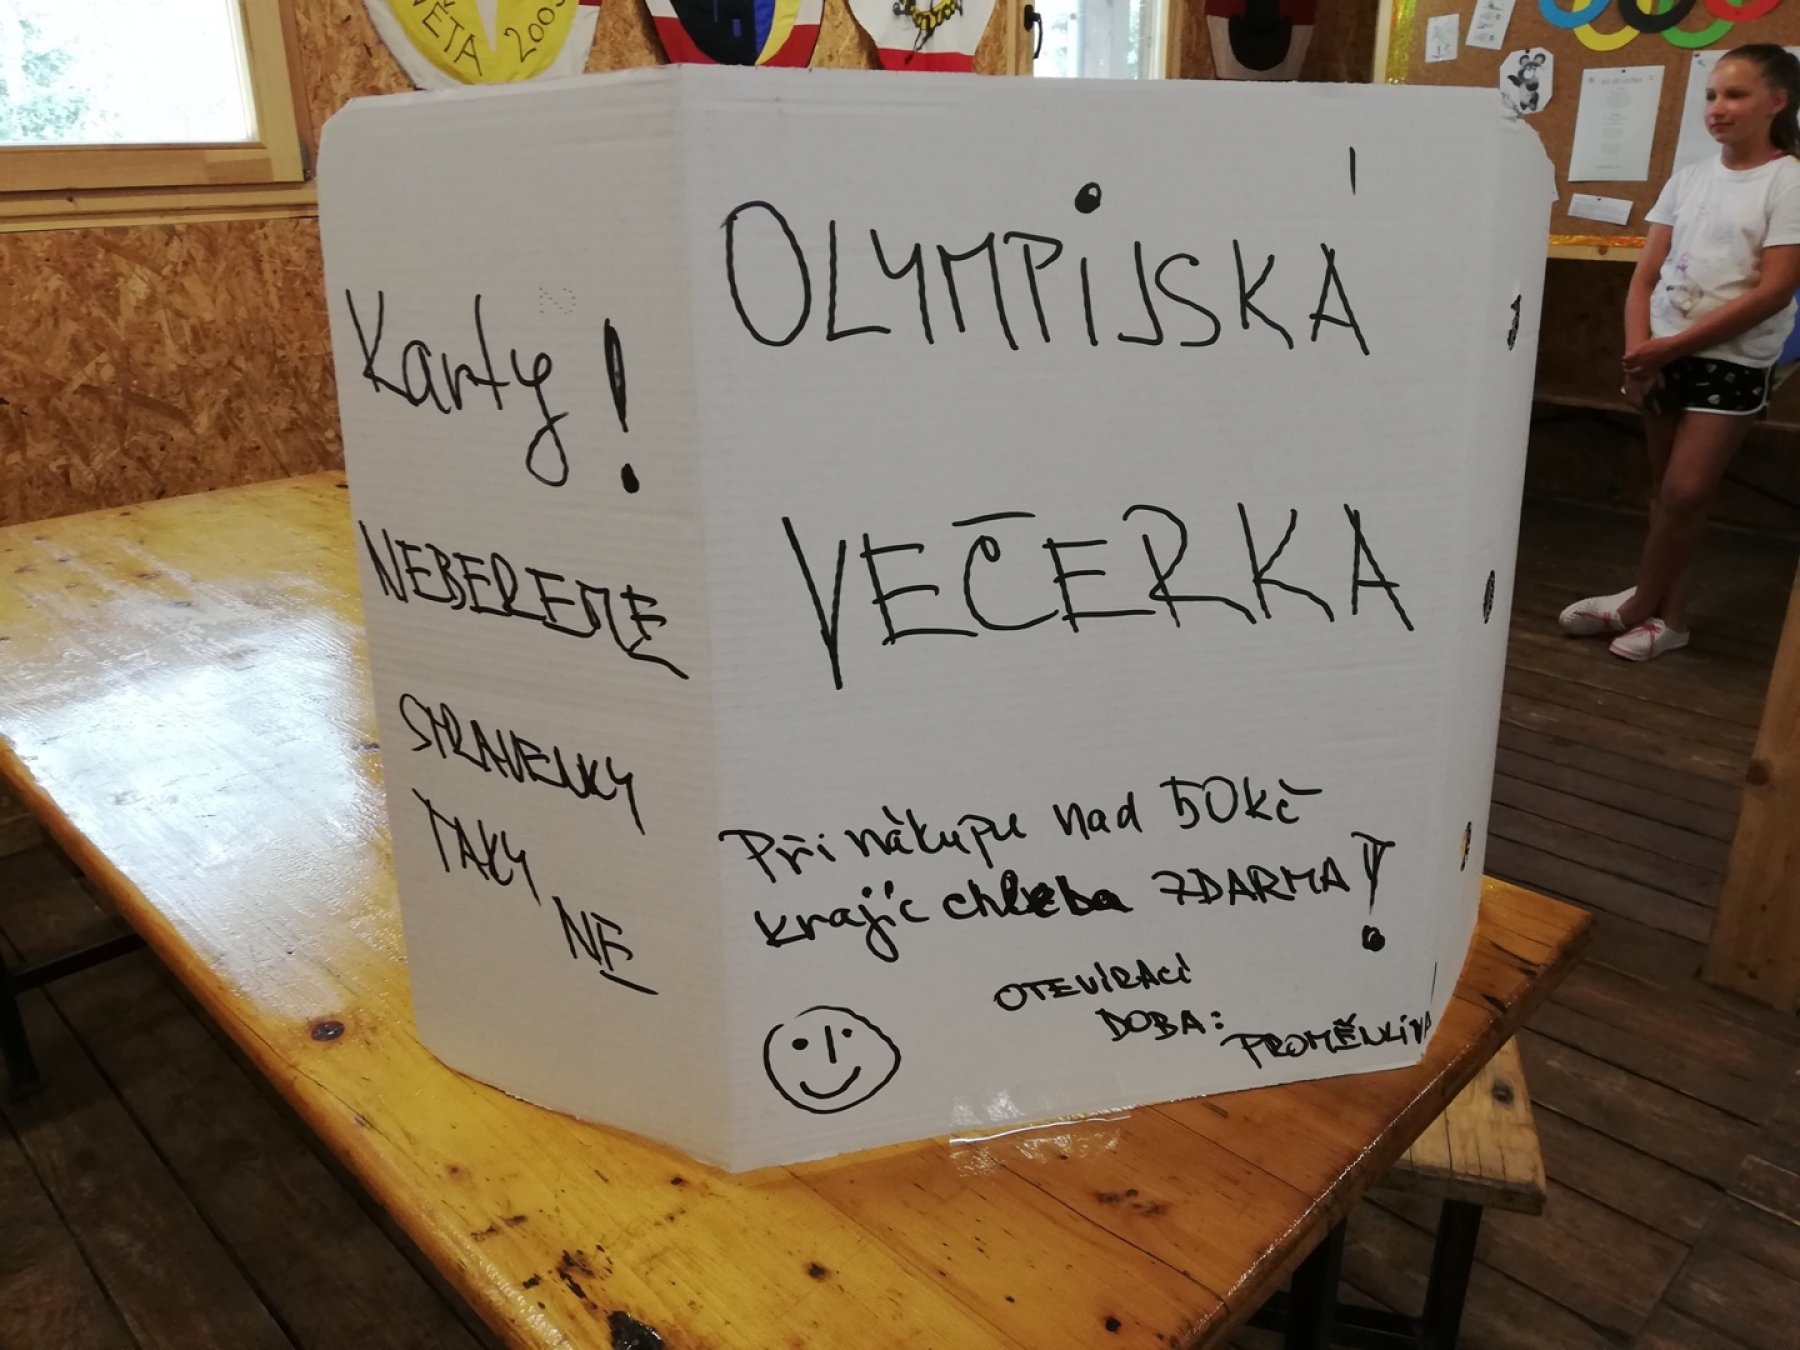 VĚTA 2003
Karty!
NEBEREME
STRAVENKY
TAKY
NE
OLYMPIJSKÁ
VEČERKA
Při nákupu nad 50kč
krajíc chleba ZDARMA!
OTEVÍRACÍ
DOBA:
PROMĚNLIVÁ